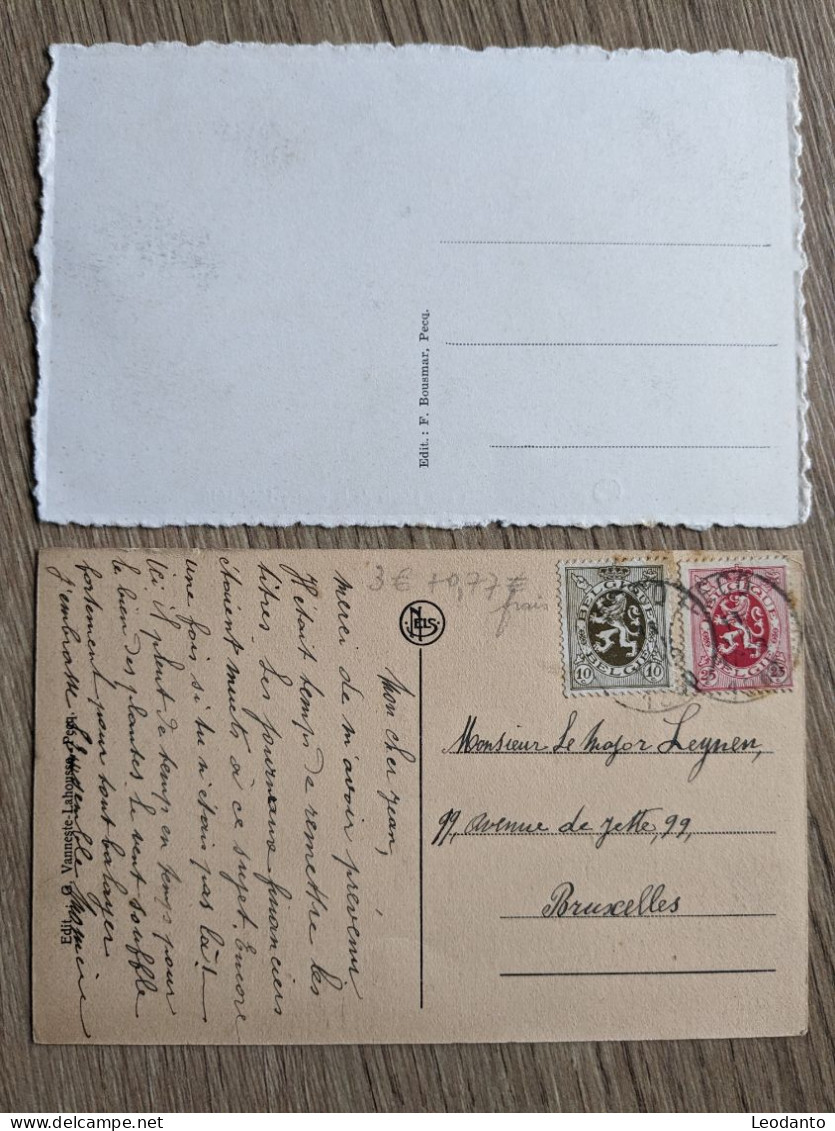 Edit.: F. Bousmar, Pecq.
3 € + 0,77 €
frais
NELS
BELGIQUE
BELGIE
10 10
BELGIQUE
BELGIE
25
PECQ
Mon cher Jean,
Merci de m'avoir prévenu
Il était temps de remettre les
titres. Les journaux financiers
étaient muets à ce sujet. Encore
une fois si tu n'étais pas là!
Ici il pleut de temps en temps pour
le bien des plantes le vent souffle
fortement pour tout balayer
J'embrasse l'ensemble
Edit. Vanneste-Lahousse, Pecq.
Monsieur Le Major Leynen,
99, Avenue de Jette, 99,
Bruxelles
Leodanto